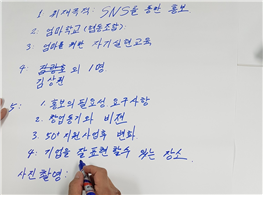 1. 취재목적: SNS을 통한 홍보
2. 엄마학교 (협동조합)
3. 엄마를 위한 자기실현교육
4. 외 1명
김상희
5: 1. 홍보의 필요성 요구사항
2. 창업동기와 비젼
3. 50+ 지원사업후 변화
4: 기업을 잘 표현할수 있는 장소
사진촬영: